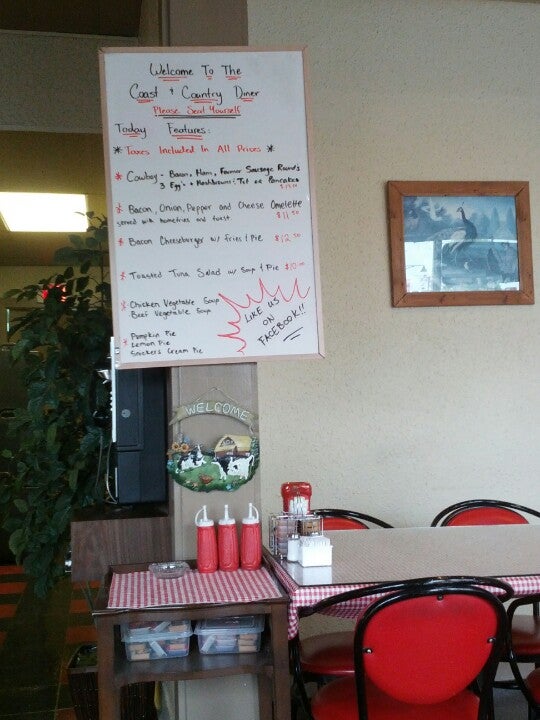 Welcome To The
Coast & Country Diner
Please Seat Yourself
Today Features:
* Taxes Included In All Prices *
* Cowboy - Bacon, Ham, Farmer Sausage Round's
3 Egg's + Hashbrowns: Tst or Pancakes
* Bacon, Onion, Pepper and Cheese Omelette
served with homefries and toast $11.50
* Bacon Cheeseburger w/ fries & Pie $12.50
* Toasted Tuna Salad w/ Soup & Pie $10.00
* Chicken Vegetable Soup
Beef Vegetable Soup
* Pumpkin Pie
Lemon Pie
Snickers Cream Pie
LIKE US
ON
FACEBOOK!!
WELCOME